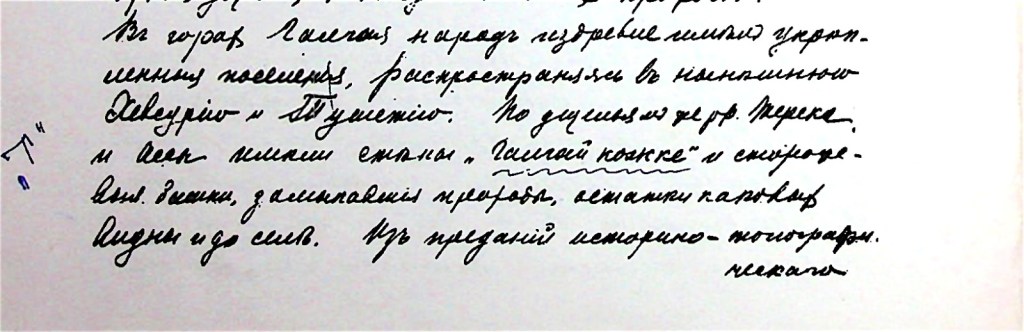 Въ горах Галгая народъ издревле имѣлъ укреп-
ленныя поселенія, распространяясь въ нынѣшнюю
Хевсурію и Тушетію. По ущельям же рр. Терека
и Ассы имѣли станы „Галгай кошке“ и стороже-
выя башни, замыкавшія проходы, остатки каковых
видны и до селѣ. Изъ преданій историко-топографи-
ческаго